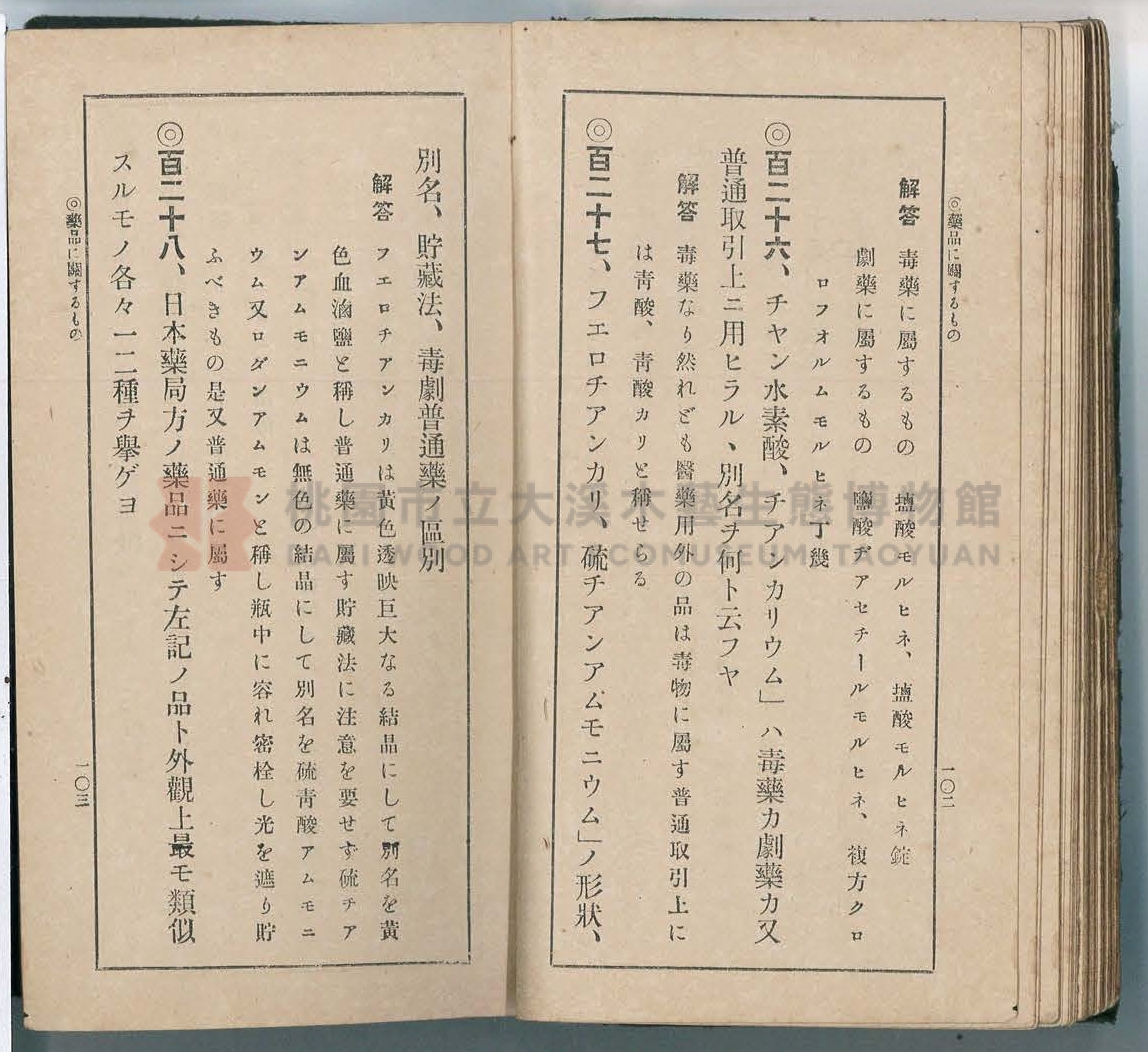 ◎藥品に關するもの
一〇二
解答 毒藥に屬するもの 塩酸モルヒネ、塩酸モルヒネ錠
劇藥に屬するもの 鹽酸ヂアセチールモルヒネ、複方クロ
ロフオルムモルヒネ丁幾
◎百二十六、チヤン水素酸、チアンカリウム」ハ毒藥カ劇藥カ又
普通取引上ニ用ヒラルヽ別名ヲ何ト云フヤ
解答 毒藥なり然れども醫藥用外の品は毒物に屬す普通取引上に
は靑酸、靑酸カリと稱せらる
◎百二十七、フエロチアンカリ、硫チアンアムモニウム」ノ形狀、
別名、貯藏法、毒劇普通藥ノ區別
解答 フエロチアンカリは黃色透映巨大なる結晶にして別名を黃
色血滷鹽と稱し普通藥に屬す貯藏法に注意を要せず硫チア
ンアムモニウムは無色の結晶にして別名を硫靑酸アムモニ
ウム又ロダンアムモンと稱し瓶中に容れ密栓し光を遮り貯
ふべきもの是又普通藥に屬す
◎百二十八、日本藥局方ノ藥品ニシテ左記ノ品ト外觀上最モ類似
スルモノ各々一二種ヲ擧ゲヨ
◎藥品に關するもの
一〇三
桃園市立大溪木藝生態博物館
DAXI WOOD ART ECOMUSEUM, TAOYUAN